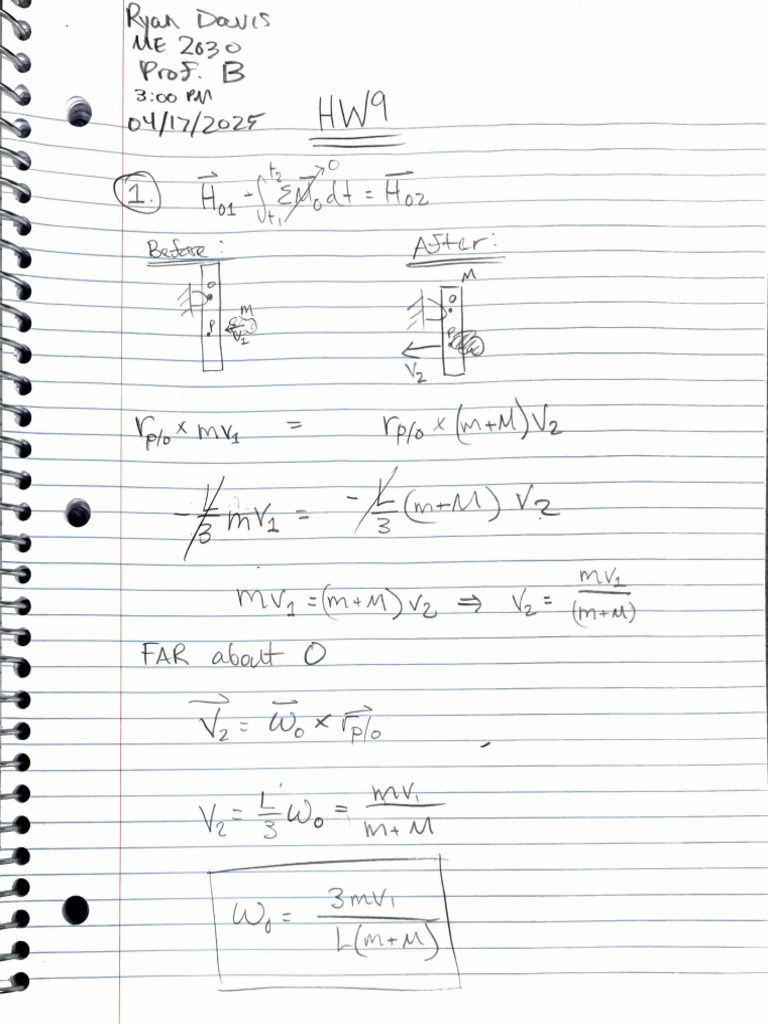 Ryan Davis
ME 2030
Prof. B
3:00 PM
04/17/2025
HW9
1. H⃗₀₁ + ∫ₜ₁ᵗ² ΣM⃗₀dt = H⃗₀₂
0
Before:
After:
O
P
M
V₁
M
O
P
V₂
r_P/O × mv₁ = r_P/O × (m+M)V₂
-L/3 mV₁ = -L/3 (m+M) V₂
mv₁ = (m+M)v₂ ⇒ V₂ = mv₁/(m+M)
FAR about O
V⃗₂ = ω⃗₀ × r⃗_P/O
V₂ = L/3 ω₀ = mv₁/m+M
ω₀ = 3mv₁/L(m+M)